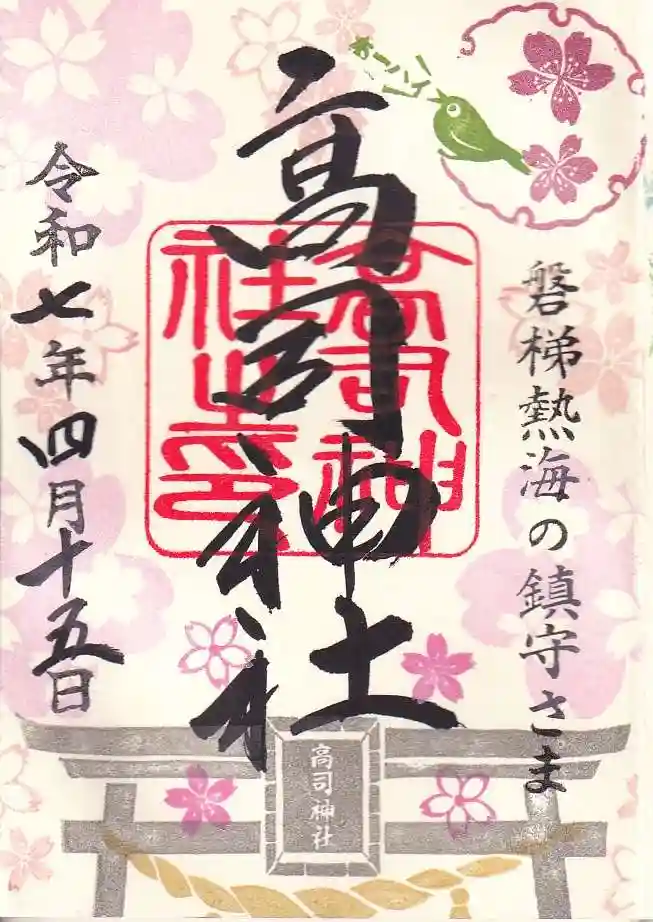 磐梯熱海の鎮守さま
高司神社
高司神社之印
令和七年四月十五日
高司神社